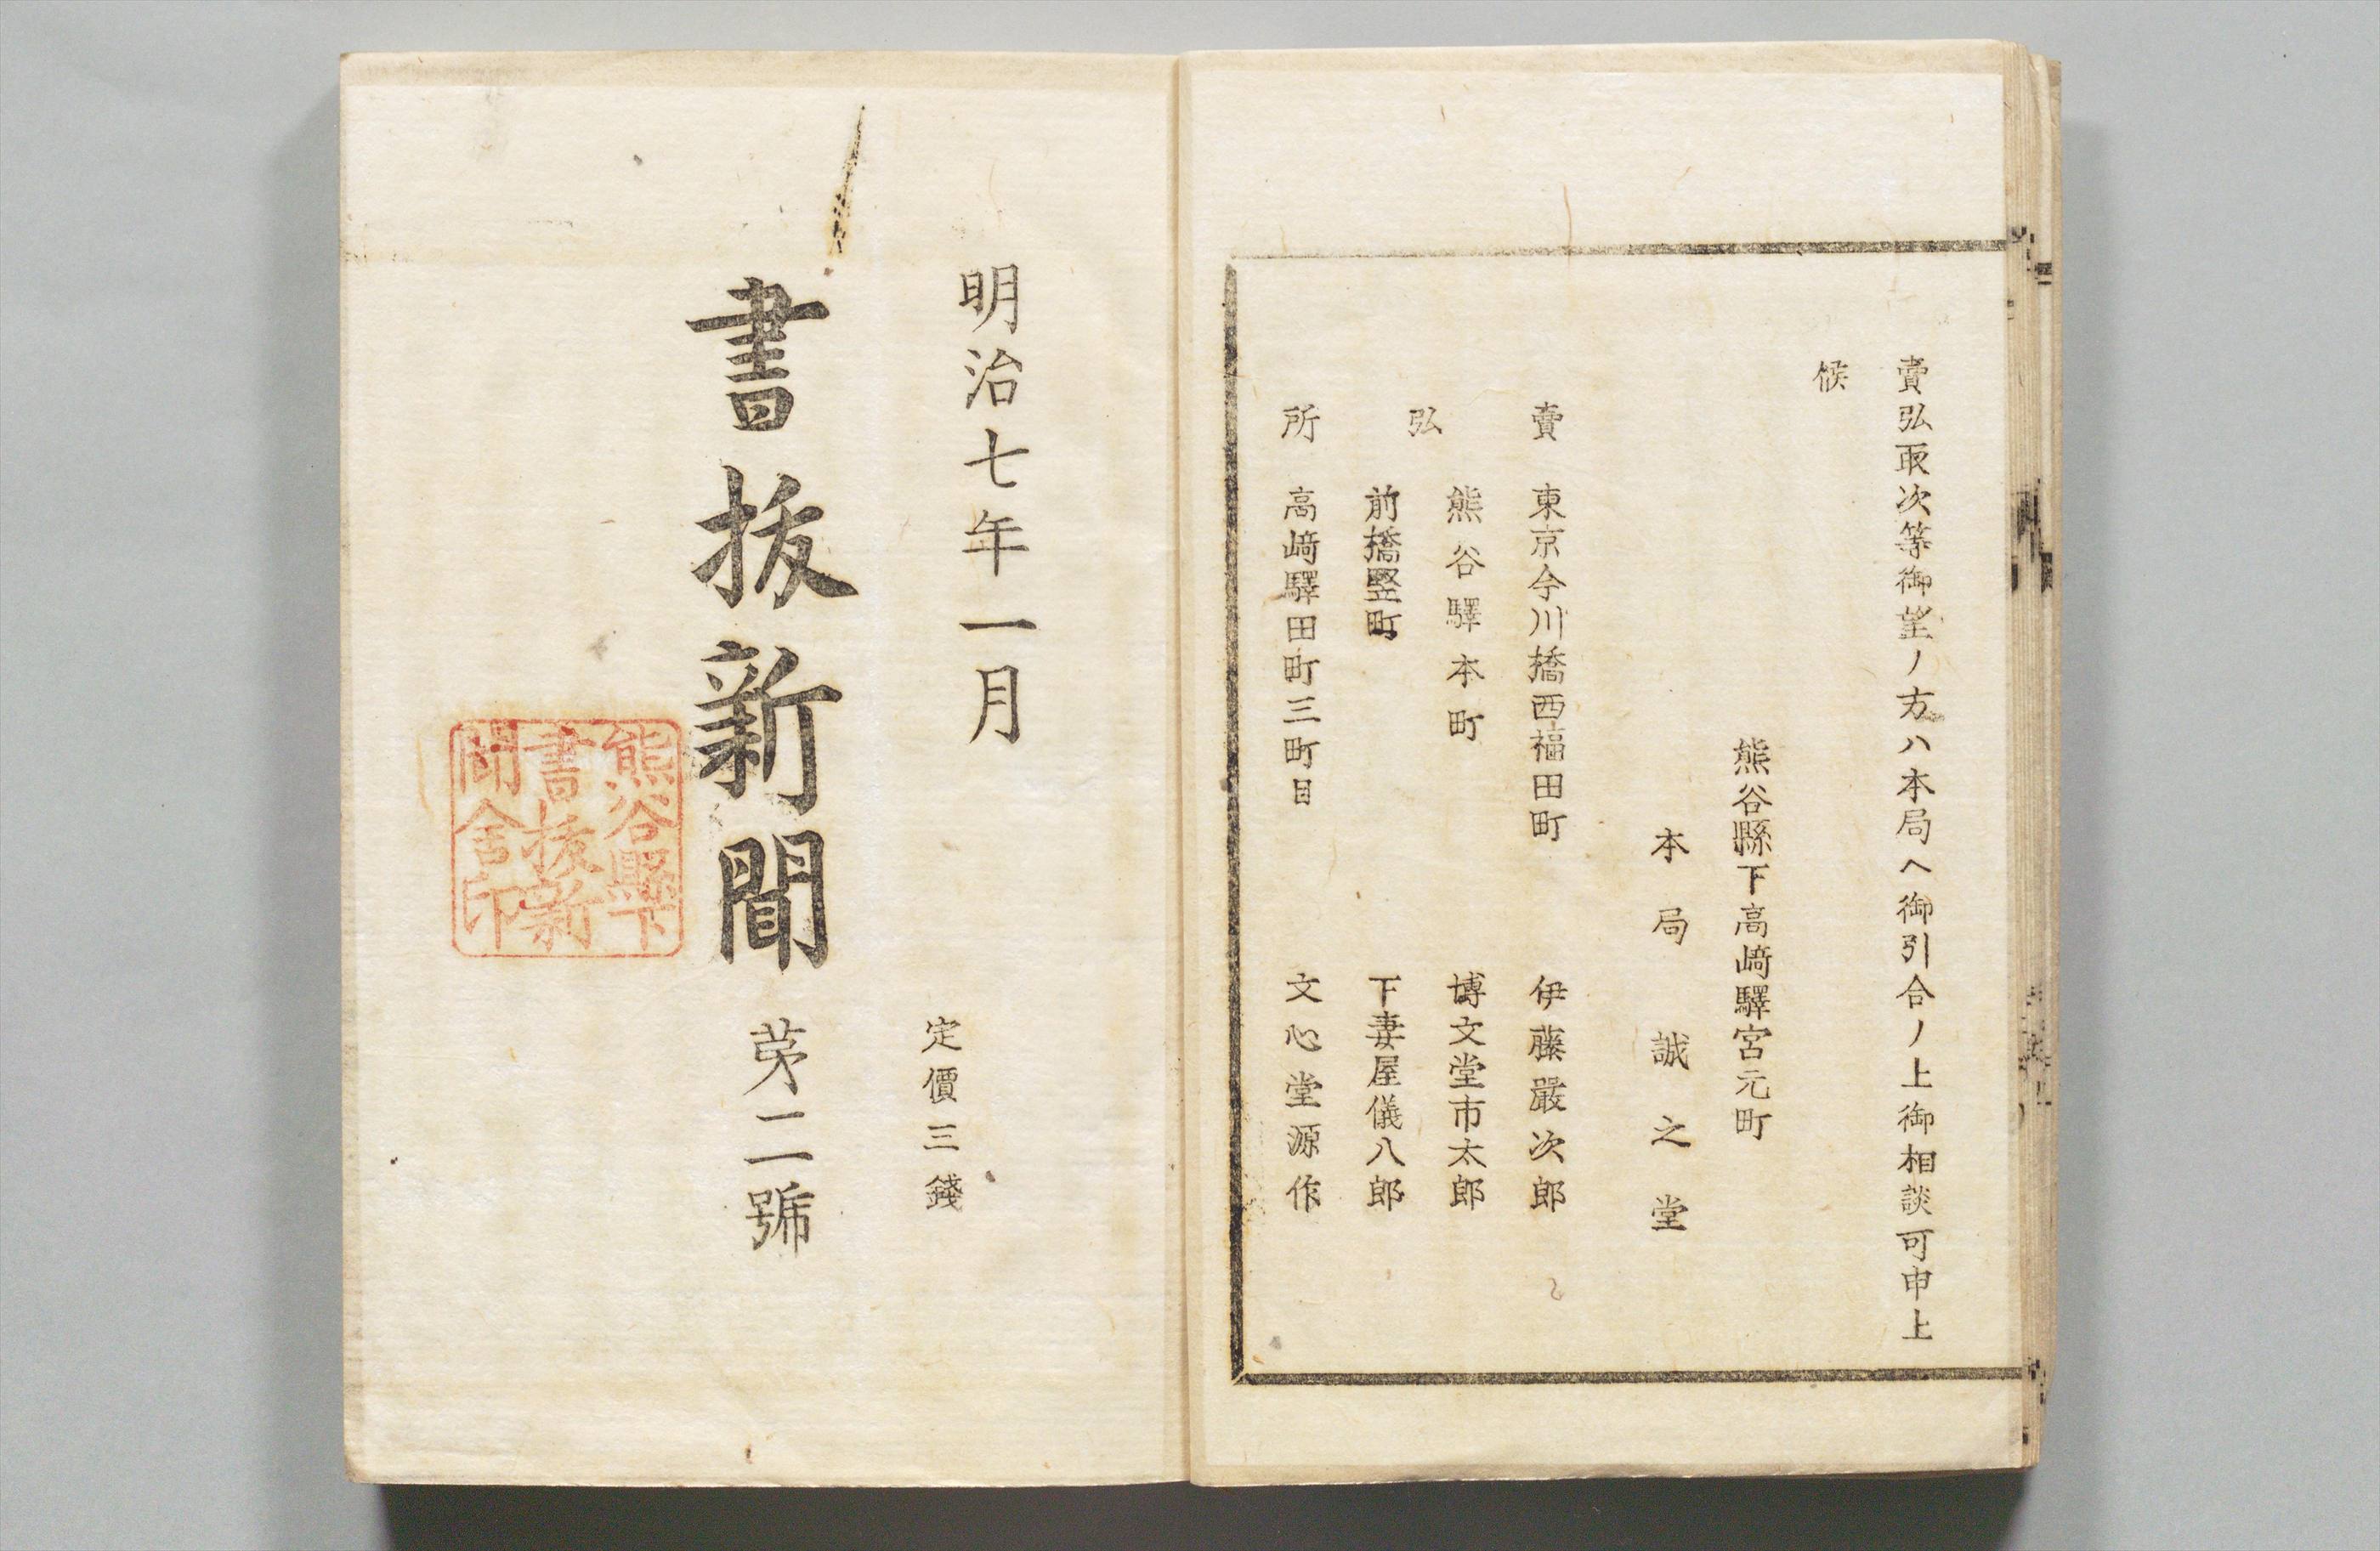 賣弘取次等御望ノ方ハ本局ヘ御引合ノ上御相談可申上
候
熊谷縣下高﨑驛宮元町
本局 誠之堂
賣 東京今川橋西福田町 伊藤嚴次郎
弘
熊谷驛本町 博文堂市太郎
前橋竪町 下妻屋儀八郎
所 高﨑驛田町三町目 文心堂源作
明治七年一月
定價三錢
書抜新聞 苐二號
熊谷縣下
書抜新
聞舍印